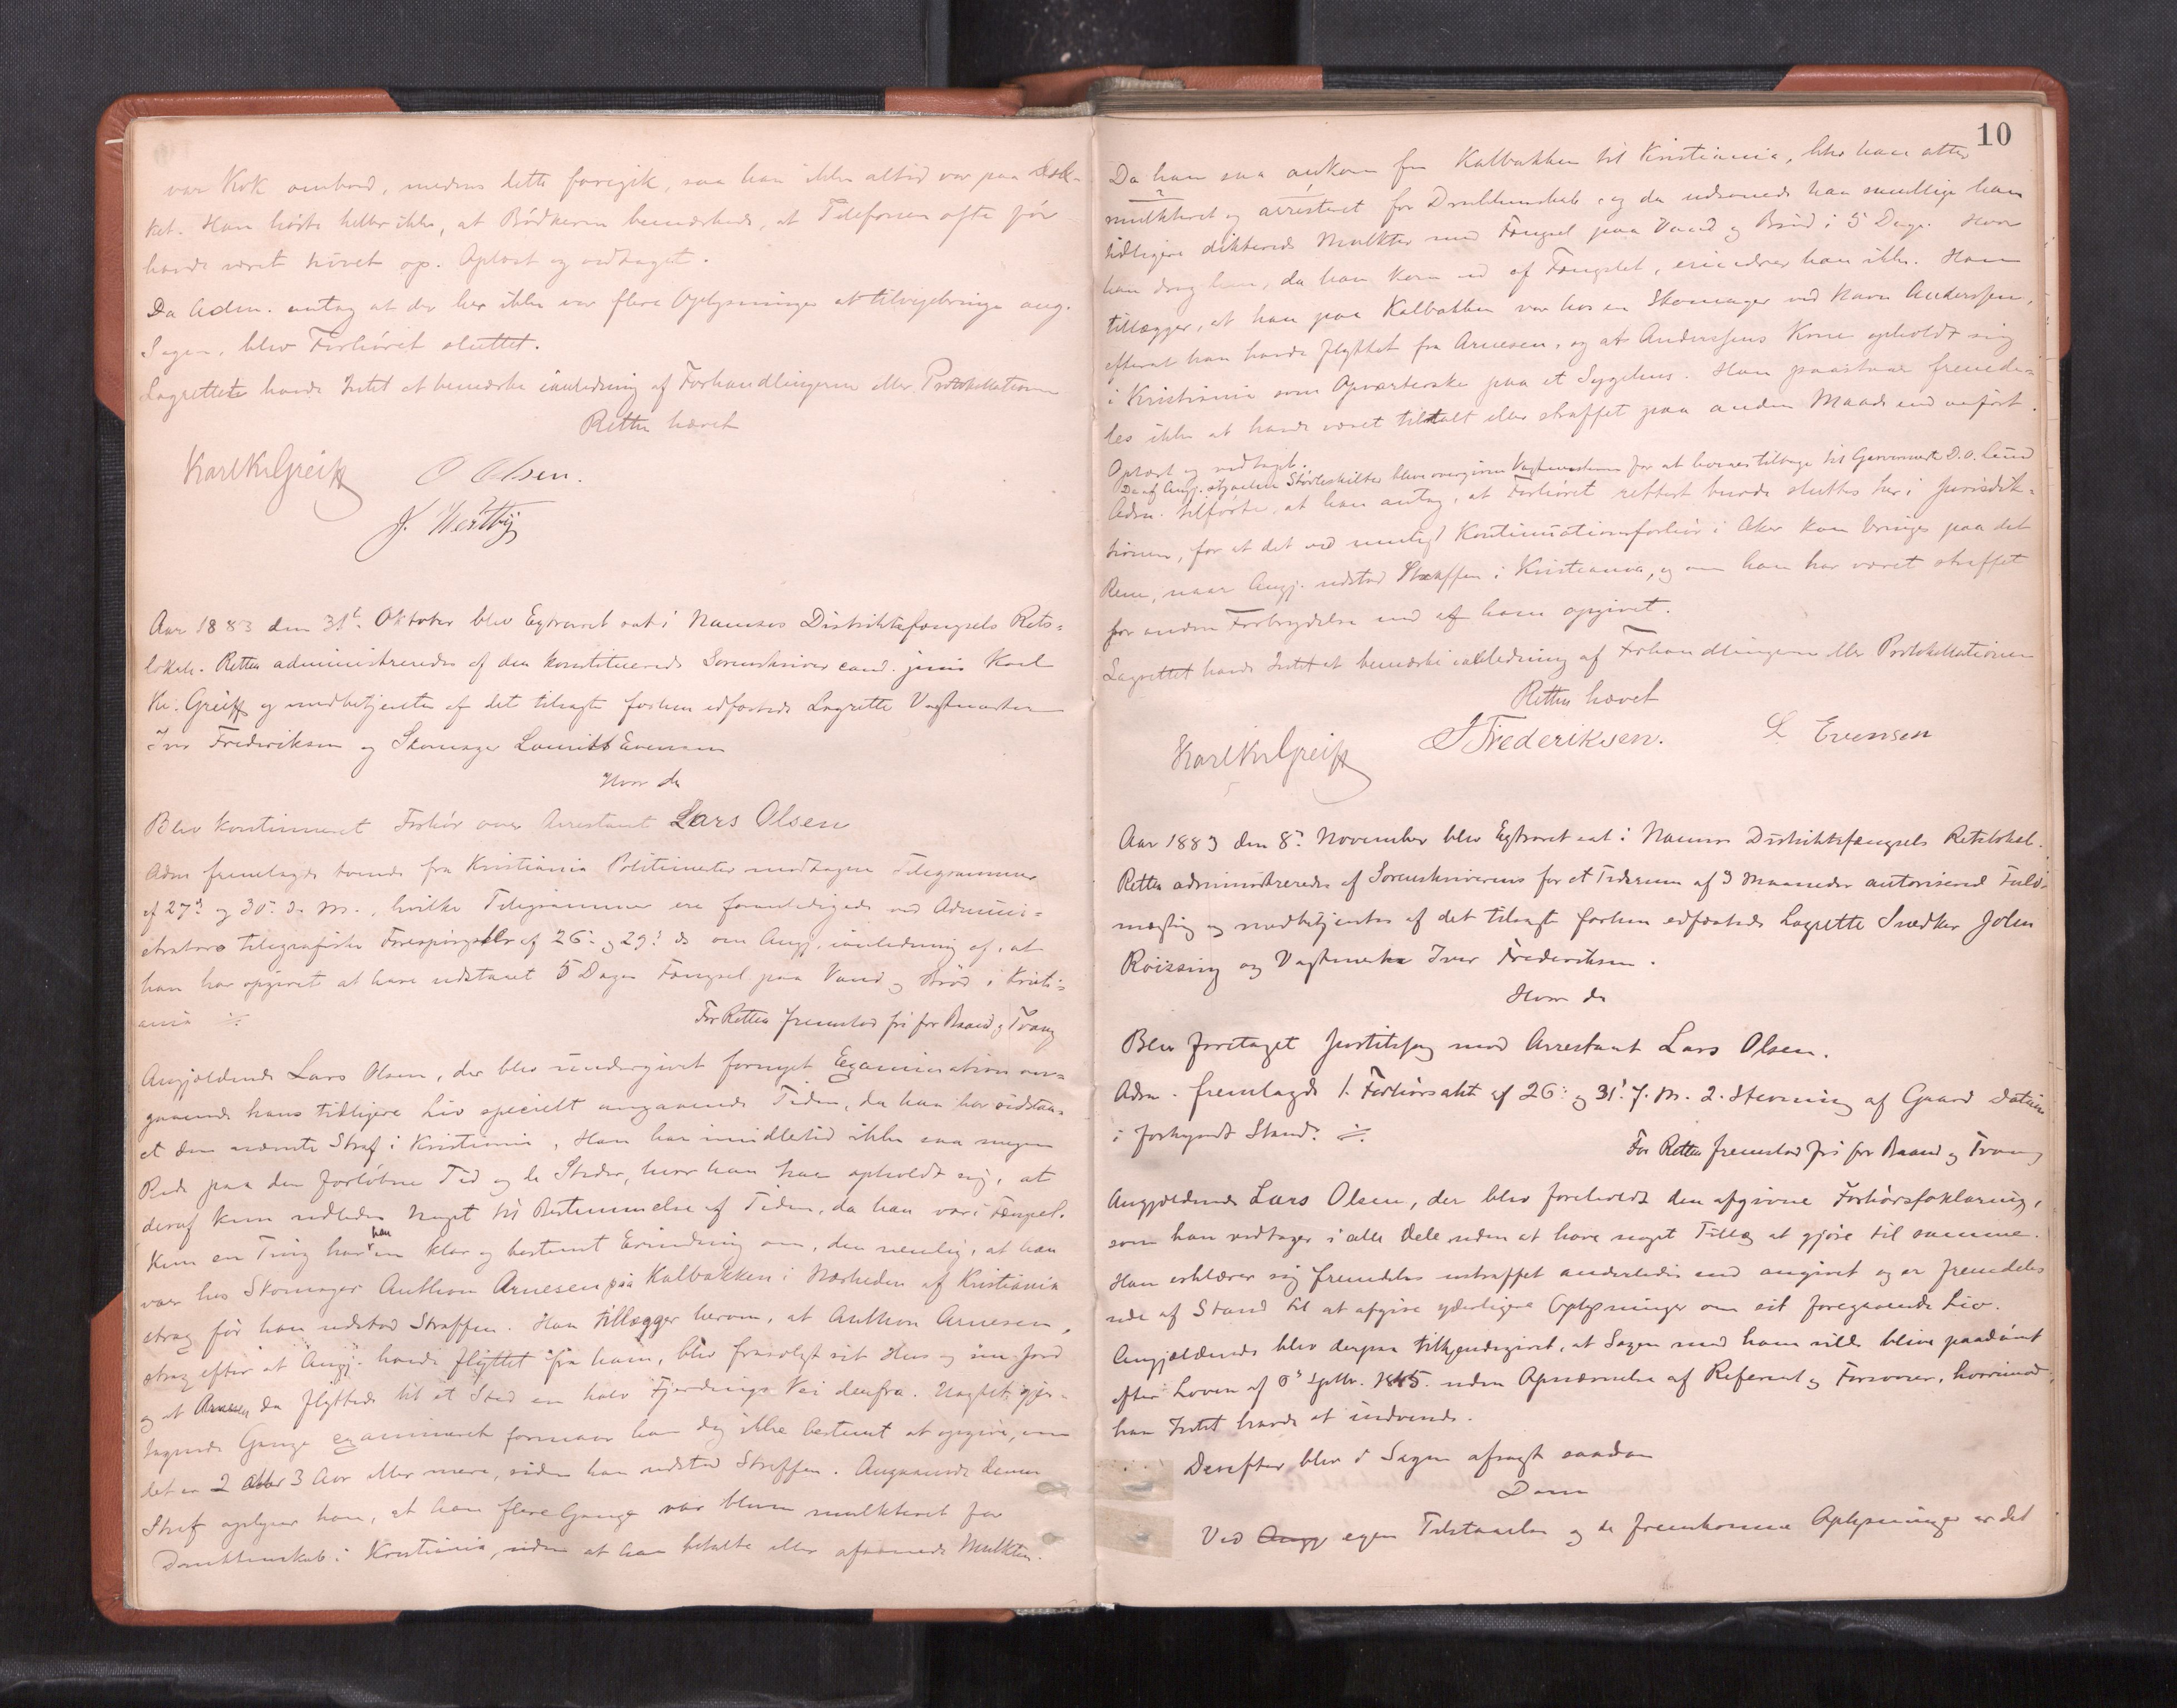 var Kok ombord, medens dette foregik, saa han ikke altid var paa Dæk-
ket. Han hørte heller ikke, at Bødkeren bemærkede, at Telefonen ofte før
havde været revet op. Oplæst og vedtaget.
Da Adm. antog at der her ikke var flere Oplysninger at tilveiebringe ang.
Sagen, blev Forhøret sluttet.
Lagrettet havde Intet at bemærke i anledning af Forhandlingerne eller Protokollationen
Retten hævet
Karl Kr. Greiff O Olsen.
J.
Aar 1883 den 31t. Oktober blev Extraret sat i Namsos Distriktsfængsels Rets-
lokale. Retten administreredes af den konstituerede Sorenskriver cand. juris Karl
Kr. Greiff og medbetjentes af det tilsagte forhen edfæstede Lagrette Vagtmester
Iver Frederiksen og Skomager Lauritz Evensen
Hvor da
Blev kontinueret Forhør over Arrestant Lars Olsen
Adm fremlagde tvende fra Kristiania Politimester modtagne Telegrammer
af 27de og 30te d. M., hvilke Telegrammer ere foranledigede ved Admini-
strators telegrafiske Forespørgsler af 26. og 29. ds om Angj. i anledning af, at
han har opgivet at have udstaaet 5 Dages Fængsel paa Vand og Brød i Kristi-
ania ./.
For Retten fremstod fri for Baand og Tvang
Angjældende Lars Olsen, der blev undergivet fornyet Examination an-
gaaende hans tidligere Liv specielt angaaende Tiden, da han har udstaa-
et den nævnte Straf i Kristiania. Han har imidlertid ikke saa megen
Rede paa den forløbne Tid og de Steder, hvor han har opholdt sig, at
deraf kan udledes Noget til Bestemmelse af Tiden, da han var i Fængsel.
Kun en Ting har han en klar og bestemt Erindring om, den nemlig, at han
var hos Skomager Anthon Arnesen paa Kalbakken i Nærheden af Kristiania
strax før han udstod Straffen. Han tillægger herom, at Anthon Arnesen,
strax efter at Angj. havde flyttet fra ham, blev frasolgt sit Hus og sin Jord
og at Arnesen da flyttede til et Sted en halv Fjerdings Vei derfra. Uagtet gjen-
tagende Gange examineret formaar han dog ikke bestemt at opgive, om
det er 2 eller 3 Aar eller mere, siden han udstod Straffen. Angaaende denne
Straf oplyser han, at han flere Gange var bleven mulkteret for
Drukkenskab i Kristiania, uden at han betalte eller afsonede Mulkten.
10
Da han saa ankom fra Kalbakken til Kristiania, blev han atter
mulkteret og arresteret for Drukkenskab, og da udsonede han samtlige ham
tidligere dikterede Mulkter med Fængsel paa Vand og Brød i 5 Dage. Hvor
han drog hen, da han kom ud af Fængslet, erindrer han ikke. Han
tillægger, at han paa Kalbakken var hos en Skomager ved Navn Anderssen,
efterat han havde flyttet fra Arnesen, og at Anderssens Kone opholdt sig
i Kristiania som Opvarterske paa et Sygehus. Han paastaar fremde-
les ikke at have været tiltalt eller straffet paa anden Maade end anført.
Oplæst og vedtaget.
De af Angj. stjaalne Støvleskafter blev overgivne Vagtmesteren for at leveres tilbage til Garvermester D. O. Lund
Adm. tilførte, at han antog, at Forhøret rettest burde sluttes her i Jurisdik-
tionen, for at det ved muligt Kontinuationsforhør i Aker kan bringes paa det
Rene, naar Angj. udstod Straffen i Kristiania, og om han har været straffet
for anden Forbrydelse end af ham opgivet.
Lagrettet havde Intet at bemærke i anledning af Forhandlingerne eller Protokollationen
Retten hævet
Karl Kr. Greiff I Frederiksen. L Evensen
Aar 1883 den 8de November blev Extraret sat i Namsos Distriktsfængsels Retslokale.
Retten administreredes af Sorenskriverens for et Tidsrum af 3 Maaneder autoriserede Fuld-
mægtig og medbetjentes af det tilsagte forhen edfæstede Lagrette Snedker John
Røissing og Vagtmester Iver Frederiksen.
Hvor da
Blev foretaget Justitssag mod Arrestant Lars Olsen.
Adm. fremlagde 1. Forhørsakt af 26. og 31. f. M. 2. Stevning af Gaars Datum
i forkyndt Stand. ./.
For Retten fremstod fri for Baand og Tvang
Angjældende Lars Olsen, der blev foreholdt den afgivne Forhørsforklaring,
som han vedtager i alle Dele uden at have noget Tillæg at gjøre til samme.
Han erklærer sig fremdeles ustraffet anderledes end angivet og er fremdeles
ude af Stand til at afgive yderligere Oplysninger om sit foregaaende Liv.
Angjældende blev derpaa tilkjendegivet, at Sagen mod ham vilde blive paadømt
efter Loven af 6te Septbr. 1845 uden Opnævnelse af Referent og Forsvarer, hvorimod
han Intet havde at indvende.
Derefter blev i Sagen afsagt saadan
Dom
Ved Angj egen Tilstaaelse og de fremkomne Oplysninger er det